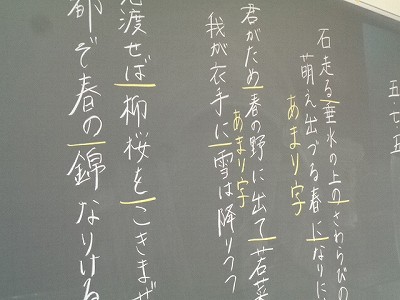 五・七・五
石走る垂水の上のさわらびの
萌え出づる春になりに
あまり字
君がため春の野に出て若菜
あまり字
我が衣手に雪は降りつつ
渡せば柳桜をこきまぜ
都ぞ春の錦なりける